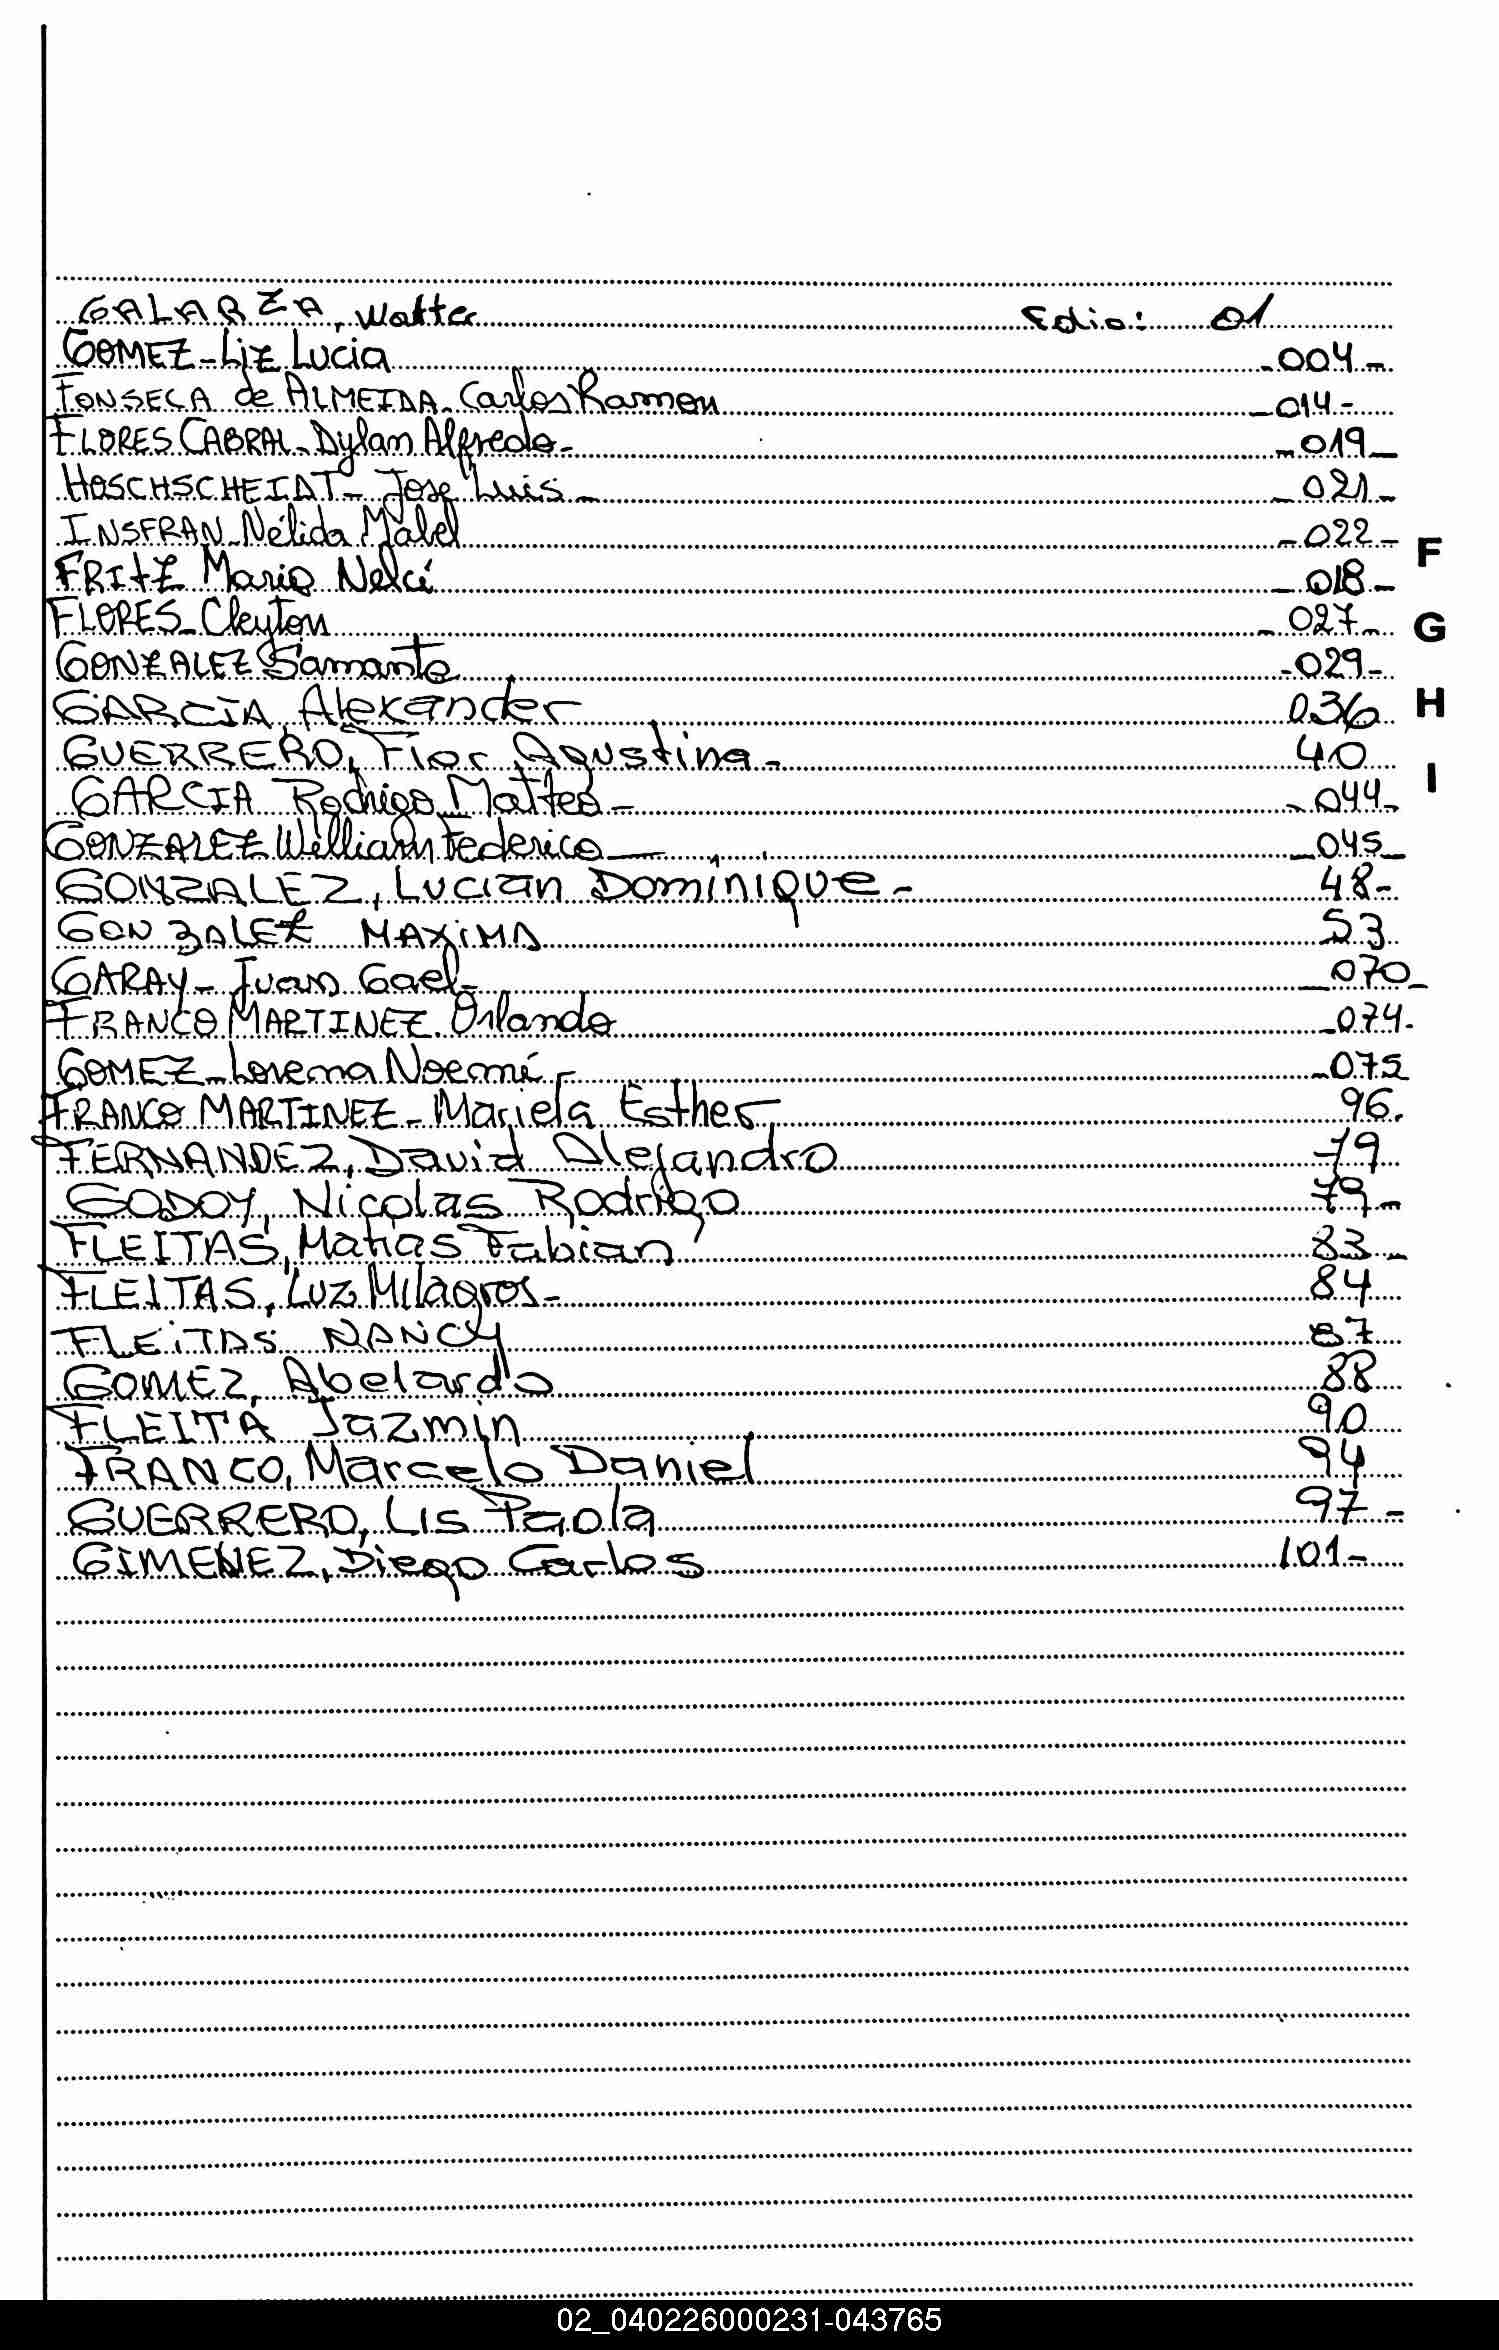 GALARZA, Walter Folio: 01
GOMEZ - Liz Lucia - 004 -
FONSECA de ALMEIDA - Carlos Ramon - 014 -
FLORES CABRAL - Dylan Alfredo - - 019 -
HOSCHSCHEIDT - Jose Luis - - 021 -
INSFRAN - Nélida Mabel - 022 -
FRITZ Mario Nelci - 018 -
FLORES - Cleyton - 027 -
GONZALEZ Samanta - 029 -
GARCIA, Alexander 036
GUERRERO, Flor Agustina - 40
GARCIA Rodrigo Matteo - - 044 -
GONZALEZ William Federico - - 045 -
GONZALEZ, Lucian Dominique - 48 -
GONZALEZ MAXIMA 53
GARAY - Juan Gael - - 070 -
FRANCO MARTINEZ - Orlando - 074 -
GOMEZ - Lorena Noemí - 075
FRANCO MARTINEZ - Mariela Esther 96.
FERNANDEZ, David Alejandro 79
GODOY, Nicolas Rodrigo 79 -
FLEITAS, Matias Fabian 83 -
FLEITAS, Luz Milagros - 84
FLEITAS NANCY 87
GOMEZ, Abelardo 88
FLEITA Jazmin 90
FRANCO, Marcelo Daniel 94
GUERRERO, Lis Paola 97 -
GIMENEZ, Diego Carlos 101 -
F
G
H
I
02_040226000231-043765